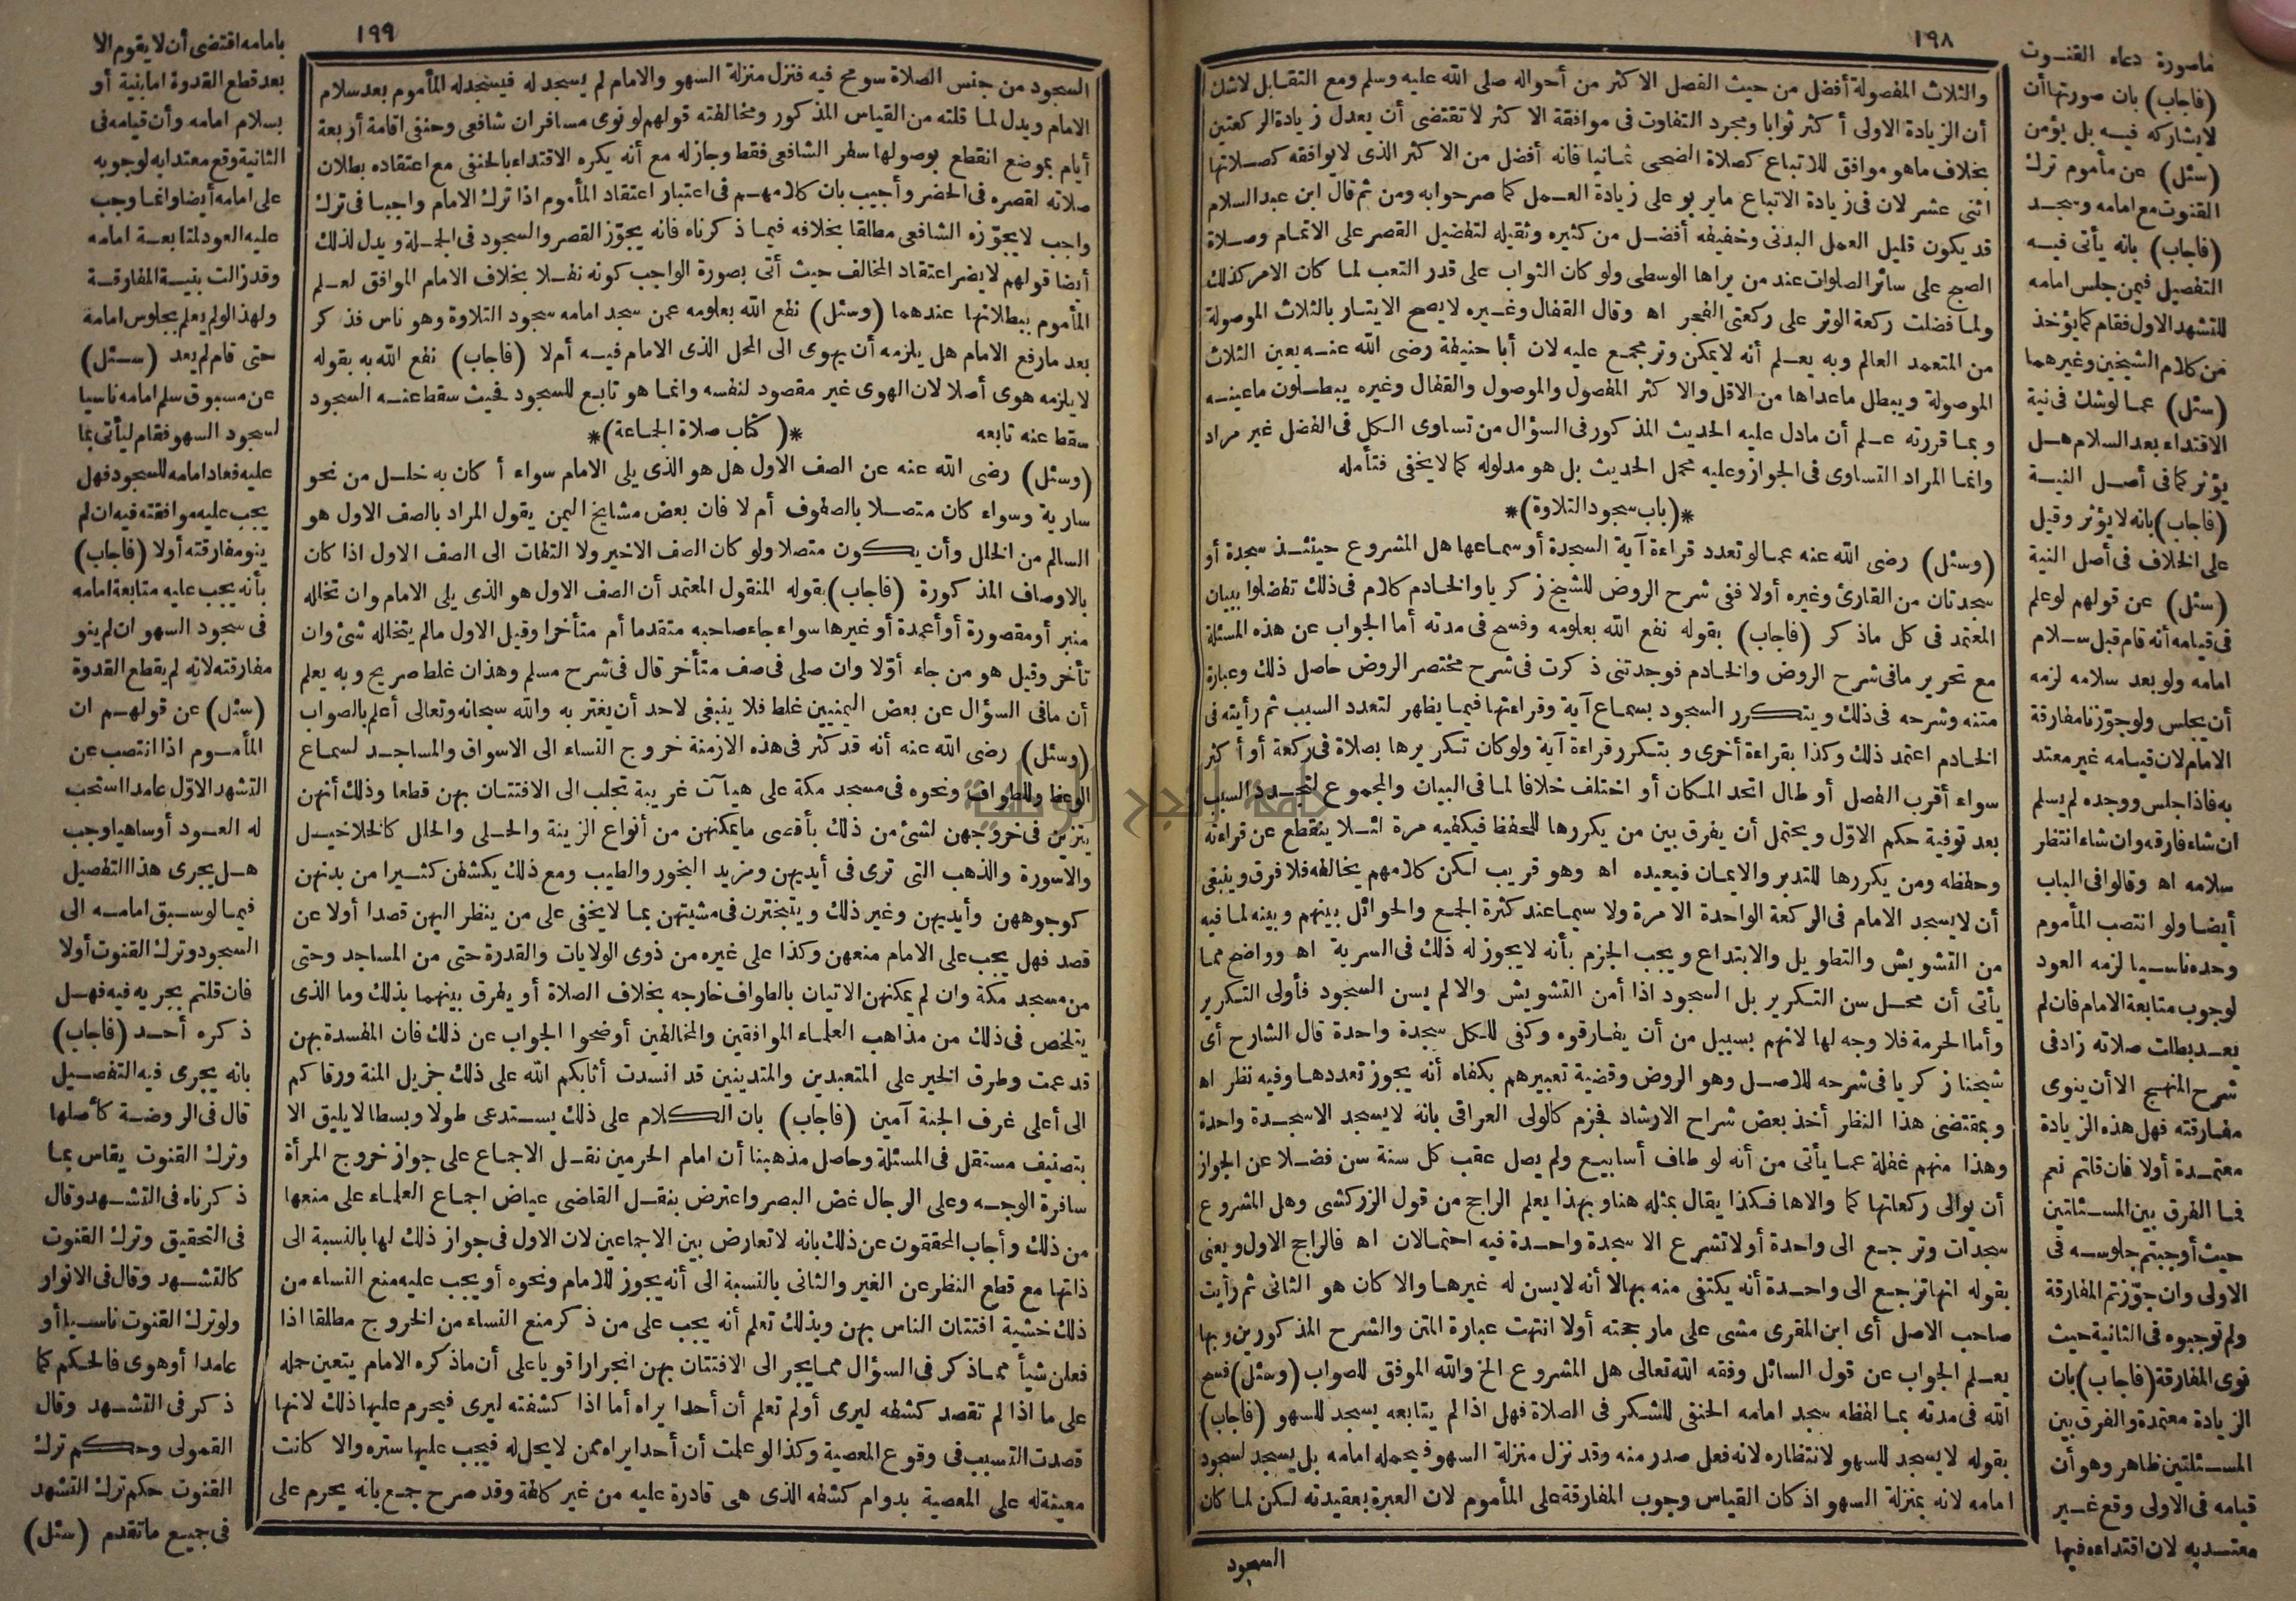 ١٩٨
والثلاث المفصولة أفضل من حيث الفصل الاكثر من أحواله صلى الله عليه وسلم ومع التقابل لاشك
أن الزيادة الاولى أكثر ثوابا ومجرد التفاوت فى موافقة الاكثر لا تقتضى أن يعدل زيادة الركعتين
بخلاف ماهو موافق للاتباع كصلاة الضحى ثمانيا فانه أفضل من الاكثر الذى لا يوافقه كصلاتها
اثنى عشر لان فى زيادة الاتباع مايربو على زيادة العمل كما صرحوا به ومن ثم قال ابن عبد السلام
قد يكون قليل العمل البدنى وخفيفه أفضل من كثيره وثقيله لتفضيل القصر على الاتمام وصلاة
الصبح على سائر الصلوات عند من يراها الوسطى ولو كان الثواب على قدر التعب لما كان الامر كذلك
ولما فضلت ركعة الوتر على ركعتى الفجر اه وقال القفال وغيره لا يصح الايتار بالثلاث الموصولة
من المتعمد العالم وبه يعلم أنه لا يمكن وتر مجمع عليه لان أبا حنيفة رضى الله عنه يعين الثلاث
الموصولة ويبطل ماعداها من الاقل والاكثر المفصول والموصول والقفال وغيره يبطلون ما عينه
وبما قررته علم أن مادل عليه الحديث المذكور فى السؤال من تساوى الكل فى الفضل غير مراد
وانما المراد التساوى فى الجواز وعليه محمل الحديث بل هو مدلوله كما لا يخفى فتأمله
*(باب سجود التلاوة)*
(وسئل) رضى الله عنه عما لو تعدد قراءة آية السجدة أو سماعها هل المشروع حينئذ سجدة أو
سجدتان من القارئ وغيره أولا ففى شرح الروض للشيخ زكريا والخادم كلام فى ذلك تفضلوا ببيان
المعتمد فى كل ماذكر (فاجاب) بقوله نفع الله بعلومه وفسح فى مدته أما الجواب عن هذه المسئلة
مع تحرير مافى شرح الروض والخادم فوجدتنى ذكرت فى شرح مختصر الروض حاصل ذلك وعبارة
متنه وشرحه فى ذلك ويتكرر السجود بسماع آية وقراءتها فيما يظهر لتعدد السبب ثم رأيته فى
الخادم اعتمد ذلك وكذا بقراءة أخرى وبتكرر قراءة آية ولو كان تكريرها بصلاة فى ركعة أو أكثر
سواء أقرب الفصل أو طال اتحد المكان أو اختلف خلافا لما فى البيان والمجموع لتجدد السبب
بعد توفية حكم الاول ويحتمل أن يفرق بين من يكررها للحفظ فيكفيه مرة لئلا ينقطع عن قراءته
وحفظه ومن يكررها للتدبر والايمان فيعيده اه وهو قريب لكن كلامهم يخالفه فلا فرق وينبغى
أن لا يسجد الامام فى الركعة الواحدة الا مرة ولا سيما عند كثرة الجمع والحوائل بينهم وبينه لما فيه
من التشويش والتطويل والابتداع ويجب الجزم بأنه لا يجوز له ذلك فى السرية اه وواضح مما
يأتى أن محل سن التكرير بل السجود اذا أمن التشويش والا لم يسن السجود فأولى التكرير
وأما الحرمة فلا وجه لها لانهم بسبيل من أن يفارقوه وكفى للكل سجدة واحدة قال الشارح أى
شيخنا زكريا فى شرحه للاصل وهو الروض وقضية تعبيرهم بكفاه أنه يجوز تعددها وفيه نظر اه
وبمقتضى هذا النظر أخذ بعض شراح الارشاد فجزم كالولى العراقى بانه لا يسجد الا سجدة واحدة
وهذا منهم غفلة عما يأتى من أنه لو طاف أسابيع ولم يصل عقب كل سنة سن فضلا عن الجواز
أن يوالى ركعاتها كما والاها فكذا يقال بمثله هنا وبهذا يعلم الراجح من قول الزركشى وهل المشروع
سجدات وترجع الى واحدة أولا تشرع الا سجدة واحدة فيه احتمالات اه فالراجح الاول ويعنى
بقوله انها ترجع الى واحدة أنه يكتفى منه بها لا أنه لا يسن له غيرها والا كان هو الثانى ثم رأيت
صاحب الاصل أى ابن المقرى مشى على مارجحته أولا انتهت عبارة المتن والشرح المذكورين وبها
يعلم الجواب عن قول السائل وفقه الله تعالى هل المشروع الخ والله الموفق للصواب (وسئل) فسح
الله فى مدته بما لفظه سجد امامه الحنفى للشكر فى الصلاة فهل اذا لم يتابعه يسجد للسهو (فاجاب)
بقوله لا يسجد للسهو لانتظاره لانه فعل صدر منه وقد نزل منزلة السهو فيحمله امامه بل يسجد لسجود
امامه لانه بمنزلة السهو اذ كان القياس وجوب المفارقة على المأموم لان العبرة بعقيدته لكن لما كان
السجود
ماصورة دعاء القنوت
(فاجاب) بان صورتها أن
لا يشاركه فيه بل يؤمن
(سئل) عن مأموم ترك
القنوت مع امامه وسجد
(فاجاب) بانه يأتى فيه
التفصيل فيمن جلس امامه
للتشهد الاول فقام كما يؤخذ
من كلام الشيخين وغيرهما
(سئل) عما لو شك فى نية
الاقتداء بعد السلام هل
يؤثر كما فى أصل النية
(فاجاب) بانه لا يؤثر وقيل
على الخلاف فى أصل النية
(سئل) عن قولهم لو علم
فى قيامه أنه قام قبل سلام
امامه ولو بعد سلامه لزمه
أن يجلس ولو جوزنا مفارقة
الامام لان قيامه غير معتد
به فاذا جلس ووجده لم يسلم
ان شاء فارقه وان شاء انتظر
سلامه اه وقالوا فى الباب
أيضا ولو انتصب المأموم
وحده ناسيا لزمه العود
لوجوب متابعة الامام فان لم
يعد بطلت صلاته زاد فى
شرح المنهج الا أن ينوى
مفارقته فهل هذه الزيادة
معتمدة أولا فان قلتم نعم
فما الفرق بين المسئلتين
حيث أوجبتم جلوسه فى
الاولى وان جوزتم المفارقة
ولم توجبوه فى الثانية حيث
نوى المفارقة (فاجاب) بان
الزيادة معتمدة والفرق بين
المسئلتين ظاهر وهو أن
قيامه فى الاولى وقع غير
معتد به لان اقتداءه فيها
١٩٩
السجود من جنس الصلاة سومح فيه فنزل منزلة السهو والامام لم يسجد له فيسجد له المأموم بعد سلام
الامام ويدل لما قلته من القياس المذكور ومخالفته قولهم لو نوى مسافران شافعى وحنفى اقامة أربعة
أيام بموضع انقطع بوصولها سفر الشافعى فقط وجاز له مع أنه يكره الاقتداء بالحنفى مع اعتقاده بطلان
صلاته لقصره فى الحضر وأجيب بان كلامهم فى اعتبار اعتقاد المأموم اذا ترك الامام واجبا فى ترك
واجب لا يجوزه الشافعى مطلقا بخلافه فيما ذكرناه فانه يجوز القصر والسجود فى الجملة ويدل لذلك
أيضا قولهم لا يضر اعتقاد المخالف حيث أتى بصورة الواجب كونه نفلا بخلاف الامام الموافق لعلم
المأموم ببطلانها عندهما (وسئل) نفع الله بعلومه عمن سجد امامه سجود التلاوة وهو ناس فذكر
بعد مارفع الامام هل يلزمه أن يهوى الى المحل الذى الامام فيه أم لا (فاجاب) نفع الله به بقوله
لا يلزمه هوى أصلا لان الهوى غير مقصود لنفسه وانما هو تابع للسجود فحيث سقط عنه السجود
سقط عنه تابعه *(كتاب صلاة الجماعة)*
(وسئل) رضى الله عنه عن الصف الاول هل هو الذى يلى الامام سواء أكان به خلل من نحو
سارية وسواء كان متصلا بالصفوف أم لا فان بعض مشايخ اليمن يقول المراد بالصف الاول هو
السالم من الخلل وأن يكون متصلا ولو كان الصف الاخير ولا التفات الى الصف الاول اذا كان
بالاوصاف المذكورة (فاجاب) بقوله المنقول المعتمد أن الصف الاول هو الذى يلى الامام وان تخلله
منبر أو مقصورة أو أعمدة أو غيرها سواء جاء صاحبه متقدما أم متأخرا وقيل الاول مالم يتخلله شئ وان
تأخر وقيل هو من جاء أولا وان صلى فى صف متأخر قال فى شرح مسلم وهذان غلط صريح وبه يعلم
أن مافى السؤال عن بعض اليمنيين غلط فلا ينبغى لاحد أن يغتر به والله سبحانه وتعالى أعلم بالصواب
(وسئل) رضى الله عنه أنه قد كثر فى هذه الازمنة خروج النساء الى الاسواق والمساجد لسماع
الوعظ وللطواف ونحوه فى مسجد مكة على هيآت غريبة تجلب الى الافتتان بهن قطعا وذلك أنهن
يتزين فى خروجهن لشئ من ذلك بأقصى ما يمكنهن من أنواع الزينة والحلى والحلل كالخلاخيل
والاسورة والذهب التى ترى فى أيديهن ومزيد البخور والطيب ومع ذلك يكشفن كثيرا من بدنهن
كوجوههن وأيديهن وغير ذلك ويتبخترن فى مشيتهن بما لا يخفى على من ينظر اليهن قصدا أولا عن
قصد فهل يجب على الامام منعهن وكذا على غيره من ذوى الولايات والقدرة حتى من المساجد وحتى
من مسجد مكة وان لم يمكنهن الاتيان بالطواف خارجه بخلاف الصلاة أو يفرق بينهما بذلك وما الذى
يتلخص فى ذلك من مذاهب العلماء الموافقين والمخالفين أوضحوا الجواب عن ذلك فان المفسدة بهن
قد عمت وطرق الخير على المتعبدين والمتدينين قد انسدت أثابكم الله على ذلك جزيل المنة ورقاكم
الى أعلى غرف الجنة آمين (فاجاب) بان الكلام على ذلك يستدعى طولا وبسطا لا يليق الا
بتصنيف مستقل فى المسئلة وحاصل مذهبنا أن امام الحرمين نقل الاجماع على جواز خروج المرأة
سافرة الوجه وعلى الرجال غض البصر واعترض بنقل القاضى عياض اجماع العلماء على منعها
من ذلك وأجاب المحققون عن ذلك بانه لا تعارض بين الاجماعين لان الاول فى جواز ذلك لها بالنسبة الى
ذاتها مع قطع النظر عن الغير والثانى بالنسبة الى أنه يجوز للامام ونحوه أو يجب عليه منع النساء من
ذلك خشية افتتان الناس بهن وبذلك تعلم أنه يجب على من ذكر منع النساء من الخروج مطلقا اذا
فعلن شيأ مما ذكر فى السؤال مما يجر الى الافتتان بهن انجرارا قويا على أن ما ذكره الامام يتعين حمله
على ما اذا لم تقصد كشفه ليرى أولم تعلم أن أحدا يراه أما اذا كشفته ليرى فيحرم عليها ذلك لانها
قصدت التسبب فى وقوع المعصية وكذا لو علمت أن أحدا يراه ممن لا يحل له فيجب عليها ستره والا كانت
معينة له على المعصية بدوام كشفه الذى هى قادرة عليه من غير كلفة وقد صرح جمع بانه يحرم على
بامامه اقتضى أن لا يقوم الا
بعد قطع القدوة اما بنية أو
بسلام امامه وأن قيامه فى
الثانية وقع معتدا به لوجوبه
على امامه أيضا وانما وجب
عليه العود لمتابعة امامه
وقد زالت بنية المفارقة
ولهذا لو لم يعلم بجلوس امامه
حتى قام لم يعد (سئل)
عن مسبوق سلم امامه ناسيا
لسجود السهو فقام ليأتى بما
عليه فعاد امامه للسجود فهل
يجب عليه موافقته فيه ان لم
ينو مفارقته أولا (فاجاب)
بأنه يجب عليه متابعة امامه
فى سجود السهو ان لم ينو
مفارقته لانه لم يقطع القدوة
(سئل) عن قولهم ان
المأموم اذا انتصب عن
التشهد الاول عامدا استحب
له العود أو ساهيا وجب
هل يجرى هذا التفصيل
فيما لو سبق امامه الى
السجود وترك القنوت أولا
فان قلتم يجريه فيه فهل
ذكره أحد (فاجاب)
بانه يجرى فيه التفصيل
قال فى الروضة كأصلها
وترك القنوت يقاس بما
ذكرناه فى التشهد وقال
فى التحقيق وترك القنوت
كالتشهد وقال فى الانوار
ولو ترك القنوت ناسيا أو
عامدا أو هوى فالحكم كما
ذكر فى التشهد وقال
القمولى وحكم ترك
القنوت حكم ترك التشهد
فى جميع ماتقدم (سئل)